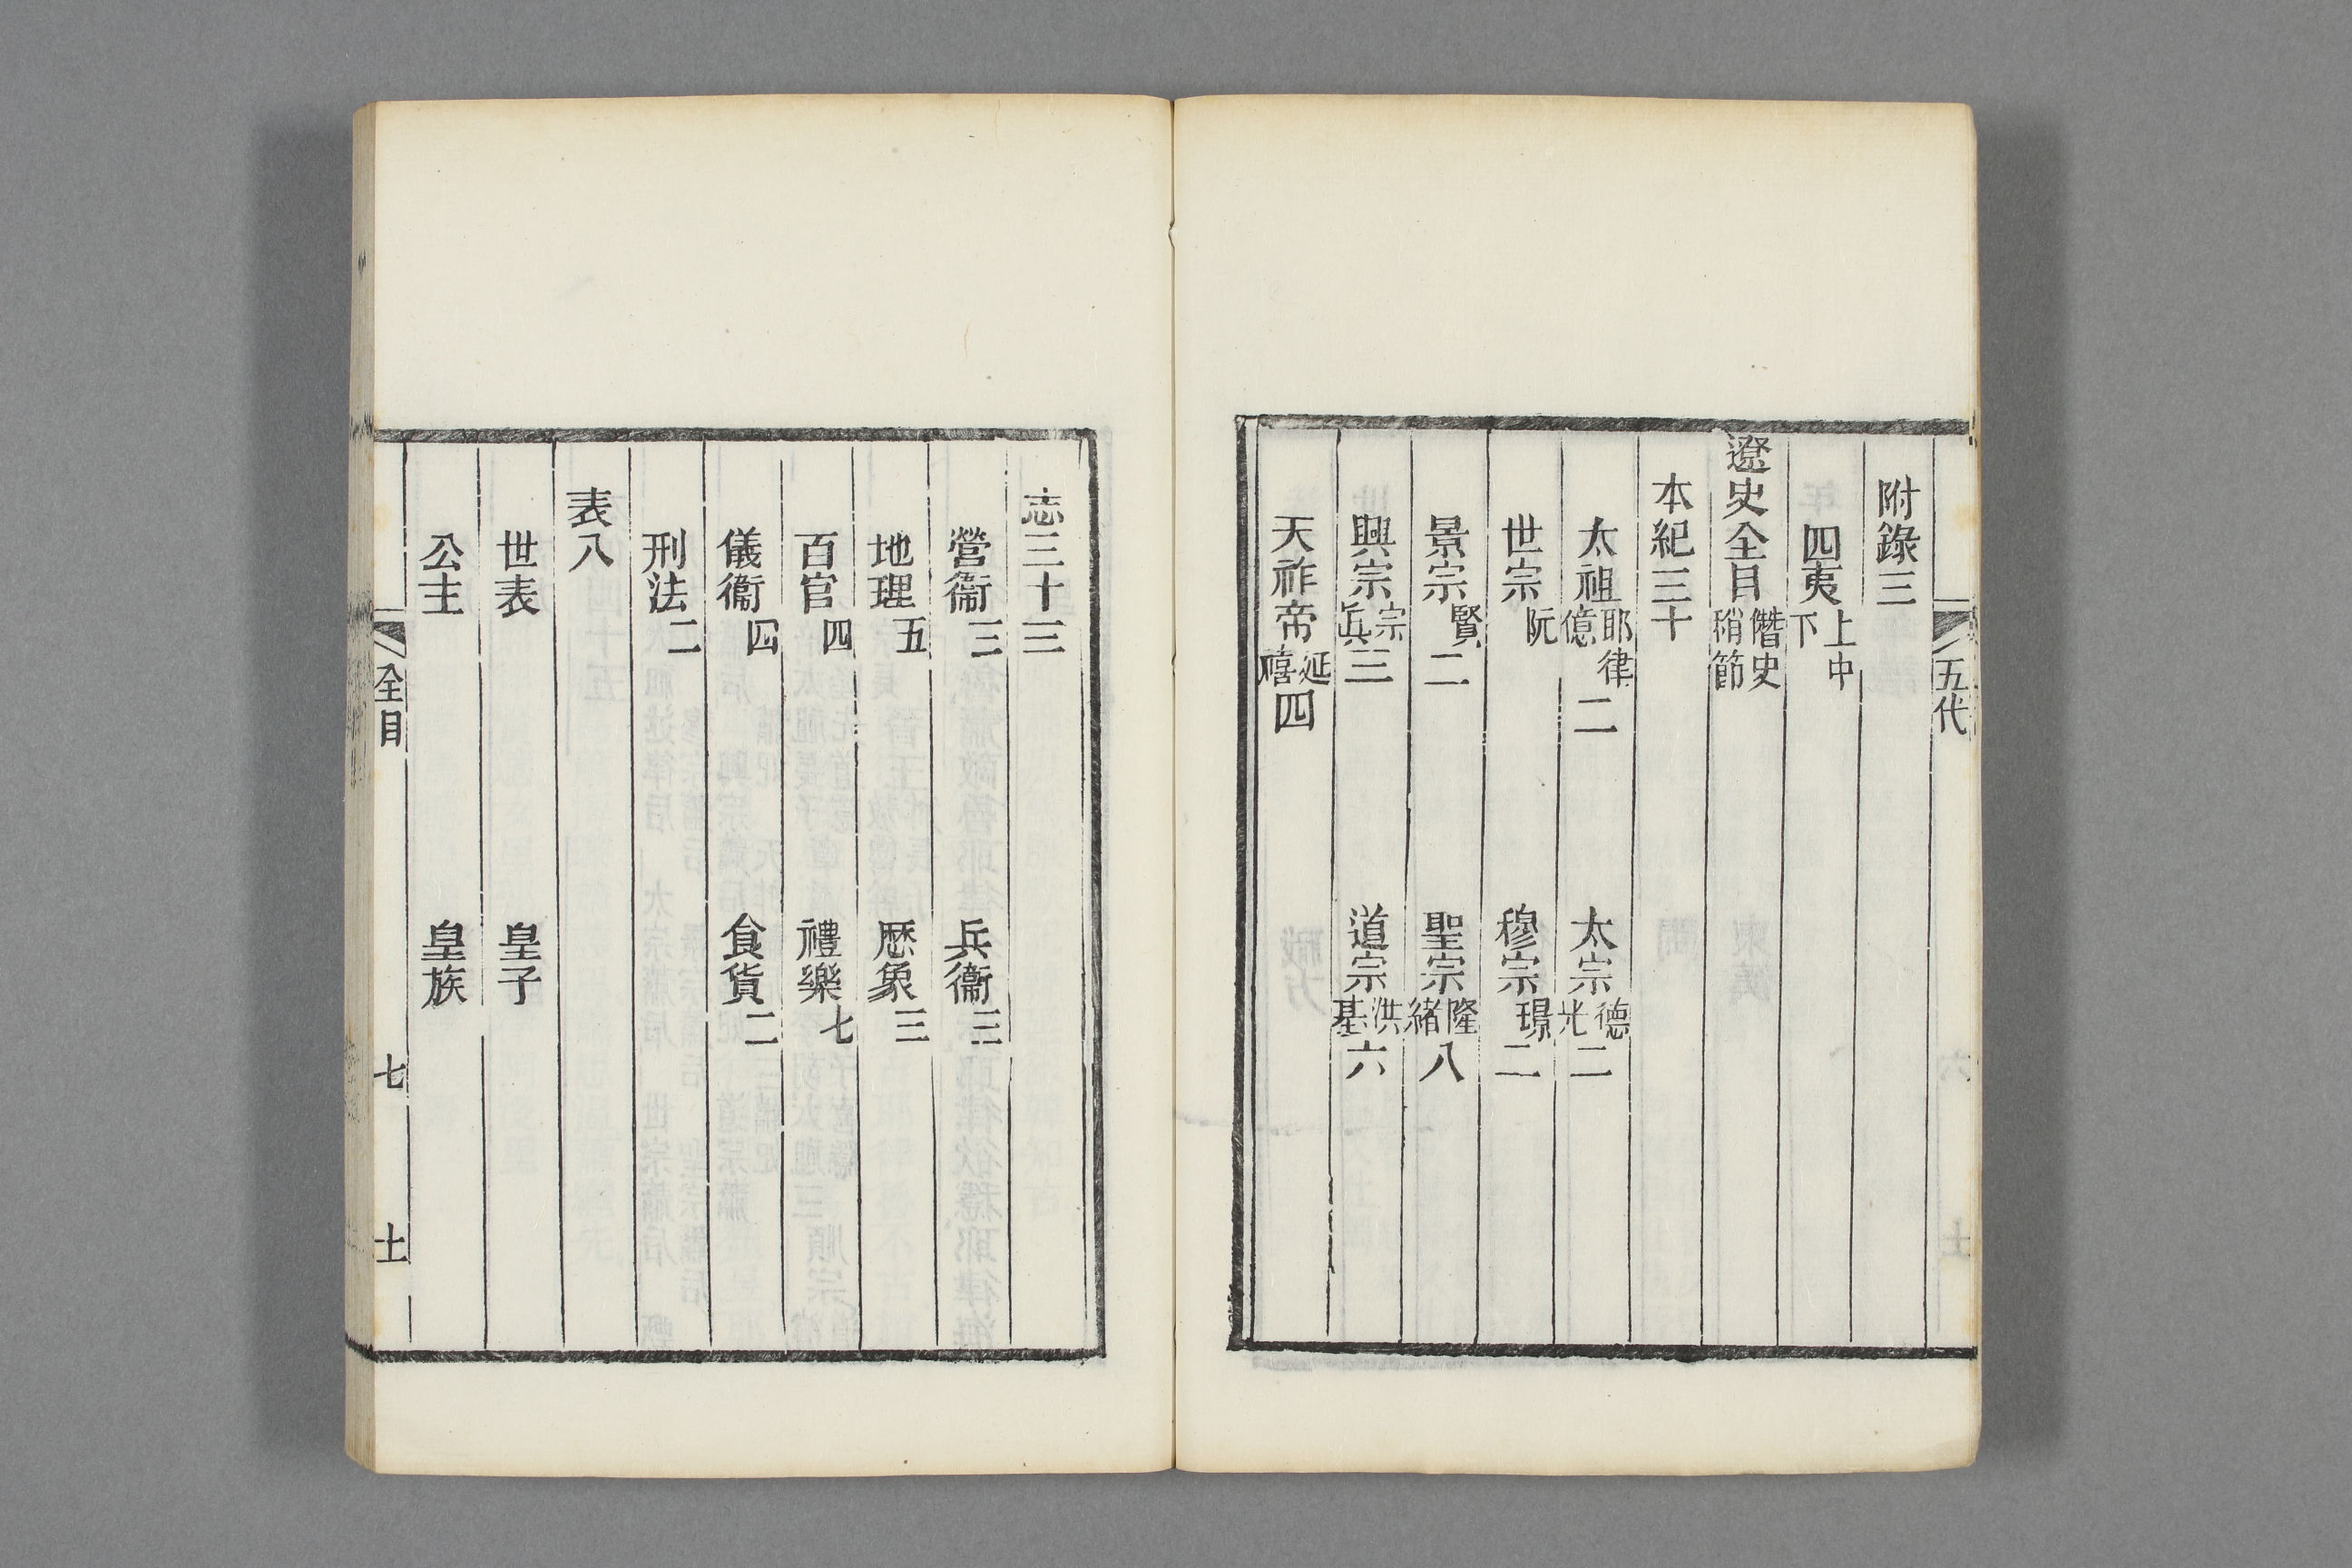 五代
附錄三
四夷上中下
遼史全目僭史稍節
本紀三十
太祖耶律億二 太宗德光二
世宗阮 穆宗璟二
景宗賢二 聖宗隆緒八
興宗宗眞三 道宗洪基六
天祚帝延禧四
志三十三
營衞三 兵衞三
地理五 歴象三
百官四 禮樂七
儀衞四 食貨二
刑法二
表八
世表 皇子
公主 皇族
全目 七 士